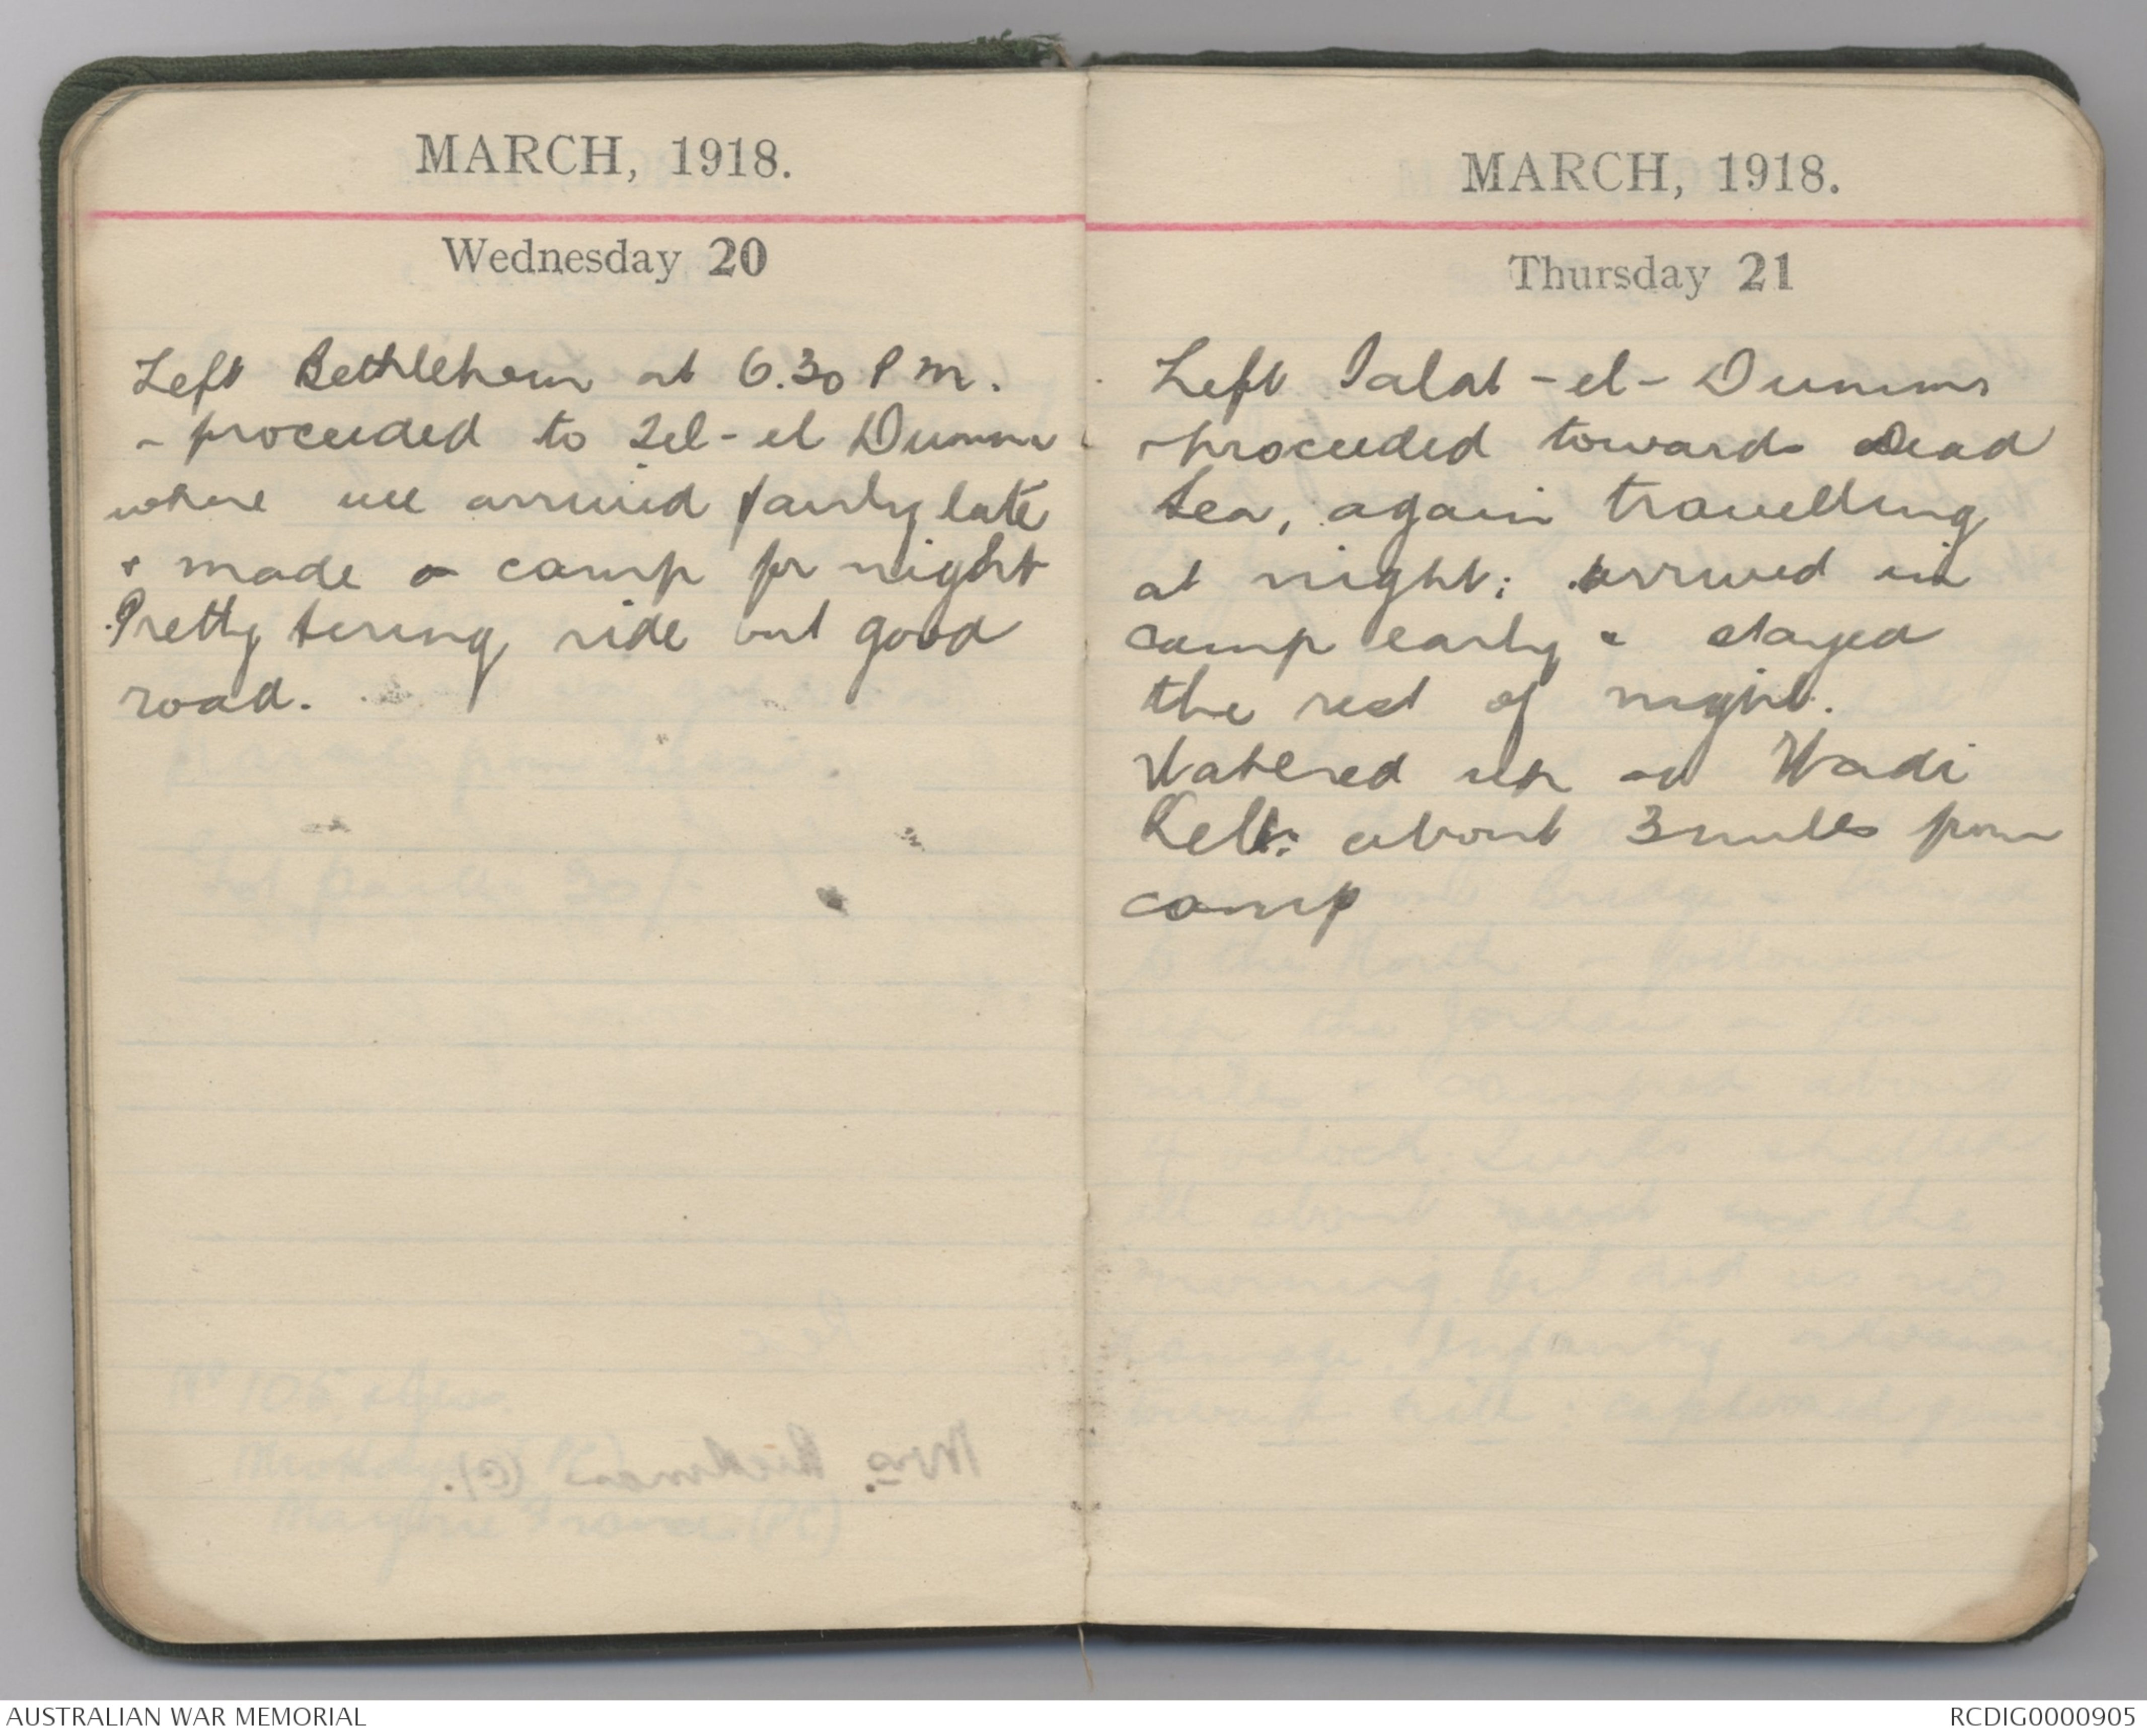 MARCH, 1918.
Wednesday 20
Left Bethlehem at 6.30 P m.
- proceeded to Tel-el Dumm
where we arrived fairly late
& made a camp for night
Pretty tiring ride but good
road.
MARCH, 1918.
Thursday 21
Left Talat-el-Dumms
proceeded towards Dead
Sea, again travelling
at night; arrived in
camp early & stayed
the rest of night.
Watered up at Wadi
Kelt: about 3 miles from
camp
AUSTRALIAN WAR MEMORIAL
RCDIG0000905